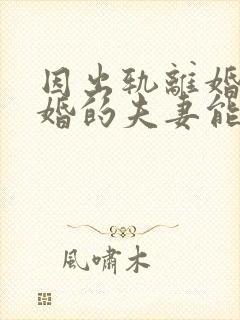 因出轨離婚
婚的夫妻能
風嘯木